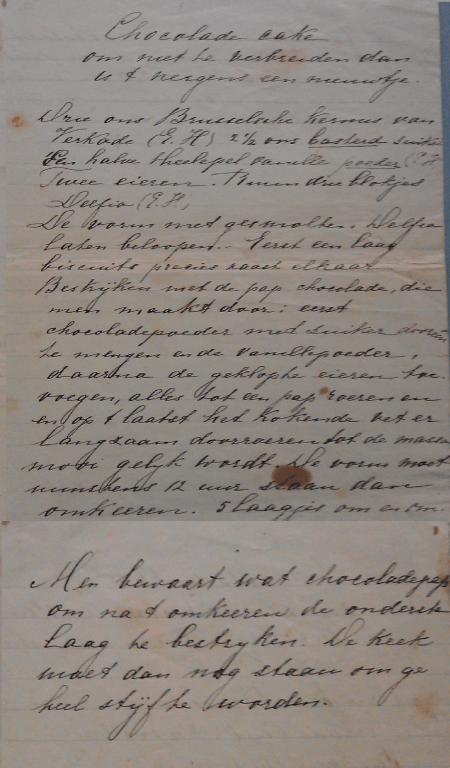 Chocolade cake
om niet te verbreiden dan
is t nergens een nieuwtje.
Drie ons Brusselsche kermis van
Verkade (E.H) 2½ ons basterd suiker
Een halve theelepel vanille poeder (E.H)
Twee eieren. Ruim drie blokjes
Delfia (E.H)
De vorm met gesmolten Delfia
laten beloopen. Eerst een laag
biscuits precies naast elkaar
Bestrijken met de pap chocolade, die
men maakt door: eerst
chocoladepoeder met suiker dooreen
te mengen en de vanillepoeder,
daarna de geklopte eieren toe
voegen, alles tot een pap roeren en
en op t laatst het kokende vet er
langzaam doorroeren tot de massa
mooi gelijk wordt. De vorm moet
minstens 12 uur staan dan
omkeeren. 5 laagjes om en om.
Men bewaart wat chocoladepap
om na t omkeeren de onderste
laag te bestrijken. De keek
moet dan nog staan om ge
heel stijf te worden.